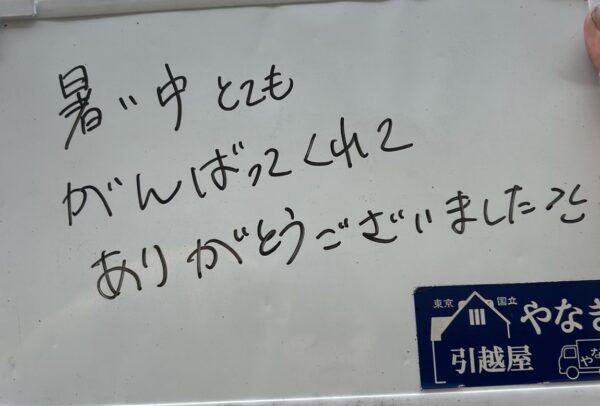 暑い中 とても
がんばってくれて
ありがとうございました
東京 国立
やなき
引越屋
やな